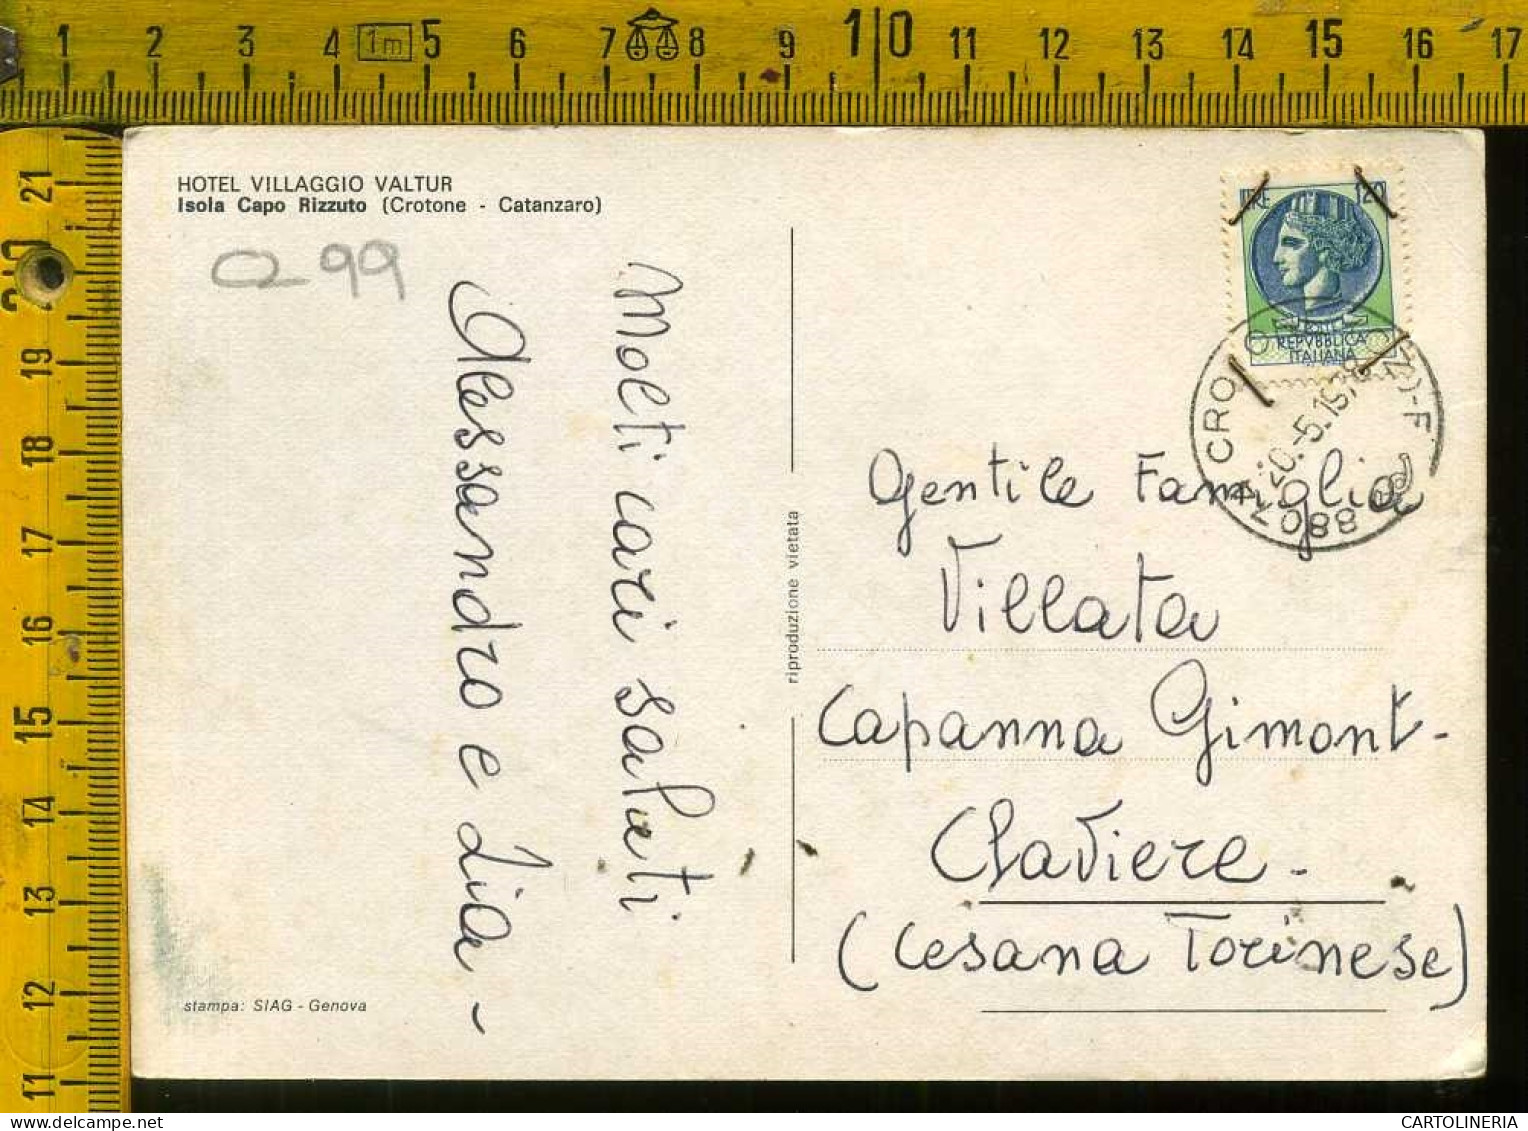 1 2 3 4 1m 5 6 7 8 9 1|0 11 12 13 14 15 16 17
21
19
18
17
16
15
14
13
12
11
HOTEL VILLAGGIO VALTUR
Isola Capo Rizzuto (Crotone - Catanzaro)
O 99
Molti cari saluti
Alessandro e Lia -
stampa: SIAG - Genova
riproduzione vietata
LIRE 120
REPVBBLICA
ITALIANA
88074 CRO
20.-5.197
Gentile Famiglia
Villata
Capanna Gimont -
Claviere -
(Cesana Torinese)
CARTOLINERIA